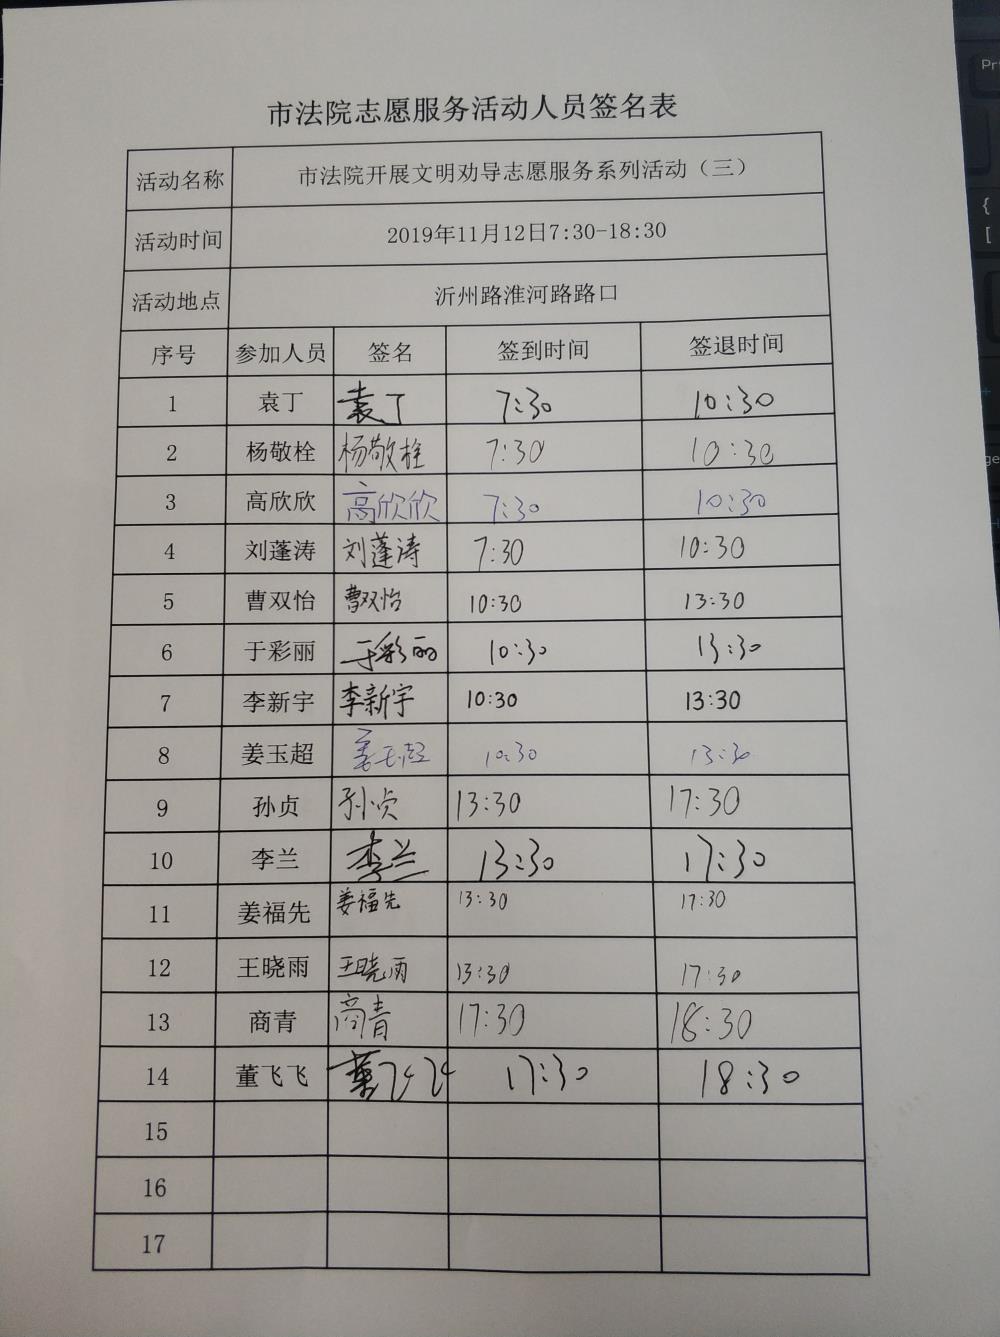 市法院志愿服务活动人员签名表
活动名称 市法院开展文明劝导志愿服务系列活动（三）
活动时间 2019年11月12日7:30-18:30
活动地点 沂州路淮河路路口
序号 参加人员 签名 签到时间 签退时间
1 袁丁 袁丁 7:30 10:30
2 杨敬栓 杨敬栓 7:30 10:30
3 高欣欣 高欣欣 7:30 10:30
4 刘蓬涛 刘蓬涛 7:30 10:30
5 曹双怡 曹双怡 10:30 13:30
6 于彩丽 于彩丽 10:30 13:30
7 李新宇 李新宇 10:30 13:30
8 姜玉超 姜玉超 10:30 13:30
9 孙贞 孙贞 13:30 17:30
10 李兰 李兰 13:30 17:30
11 姜福先 姜福先 13:30 17:30
12 王晓雨 王晓雨 13:30 17:30
13 商青 商青 17:30 18:30
14 董飞飞 董飞飞 17:30 18:30
15
16
17